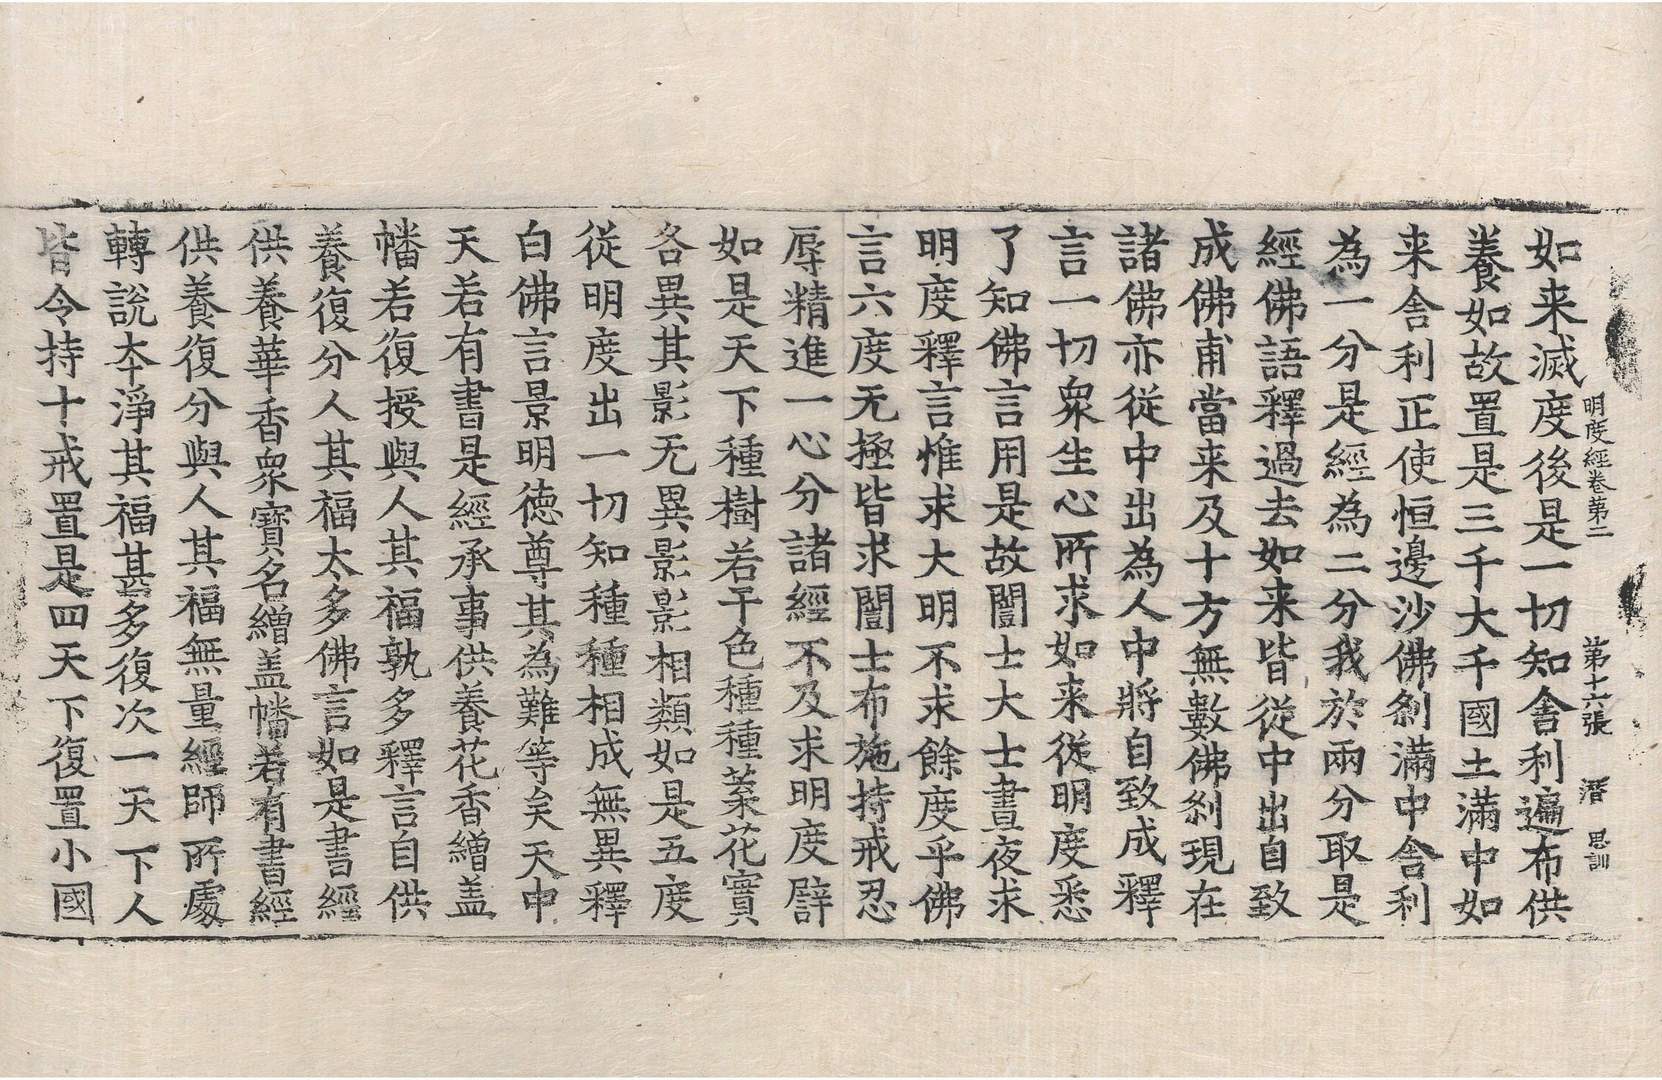 明度經卷第二　第十六張　潛　思訓
如来滅度後是一切知舍利遍布供
養如故置是三千大千國土滿中如
来舍利正使恒邊沙佛刹滿中舍利
為一分是經為二分我於兩分取是
經佛語釋過去如来皆從中出自致
成佛甫當来及十方無數佛刹現在
諸佛亦從中出為人中將自致成釋
言一切衆生心所求如来從明度悉
了知佛言用是故闓士大士晝夜求
明度釋言惟求大明不求餘度乎佛
言六度无極皆求闓士布施持戒忍
辱精進一心分諸經不及求明度譬
如是天下種樹若干色種種葉花實
各異其影无異影影相類如是五度
從明度出一切知種種相成無異釋
白佛言景明德尊其為難等矣天中
天若有書是經承事供養花香繒盖
幡若復授與人其福孰多釋言自供
養復分人其福太多佛言如是書經
供養華香衆寶名繒盖幡若有書經
供養復分與人其福無量經師所處
轉說本淨其福甚多復次一天下人
皆令持十戒置是四天下復置小國